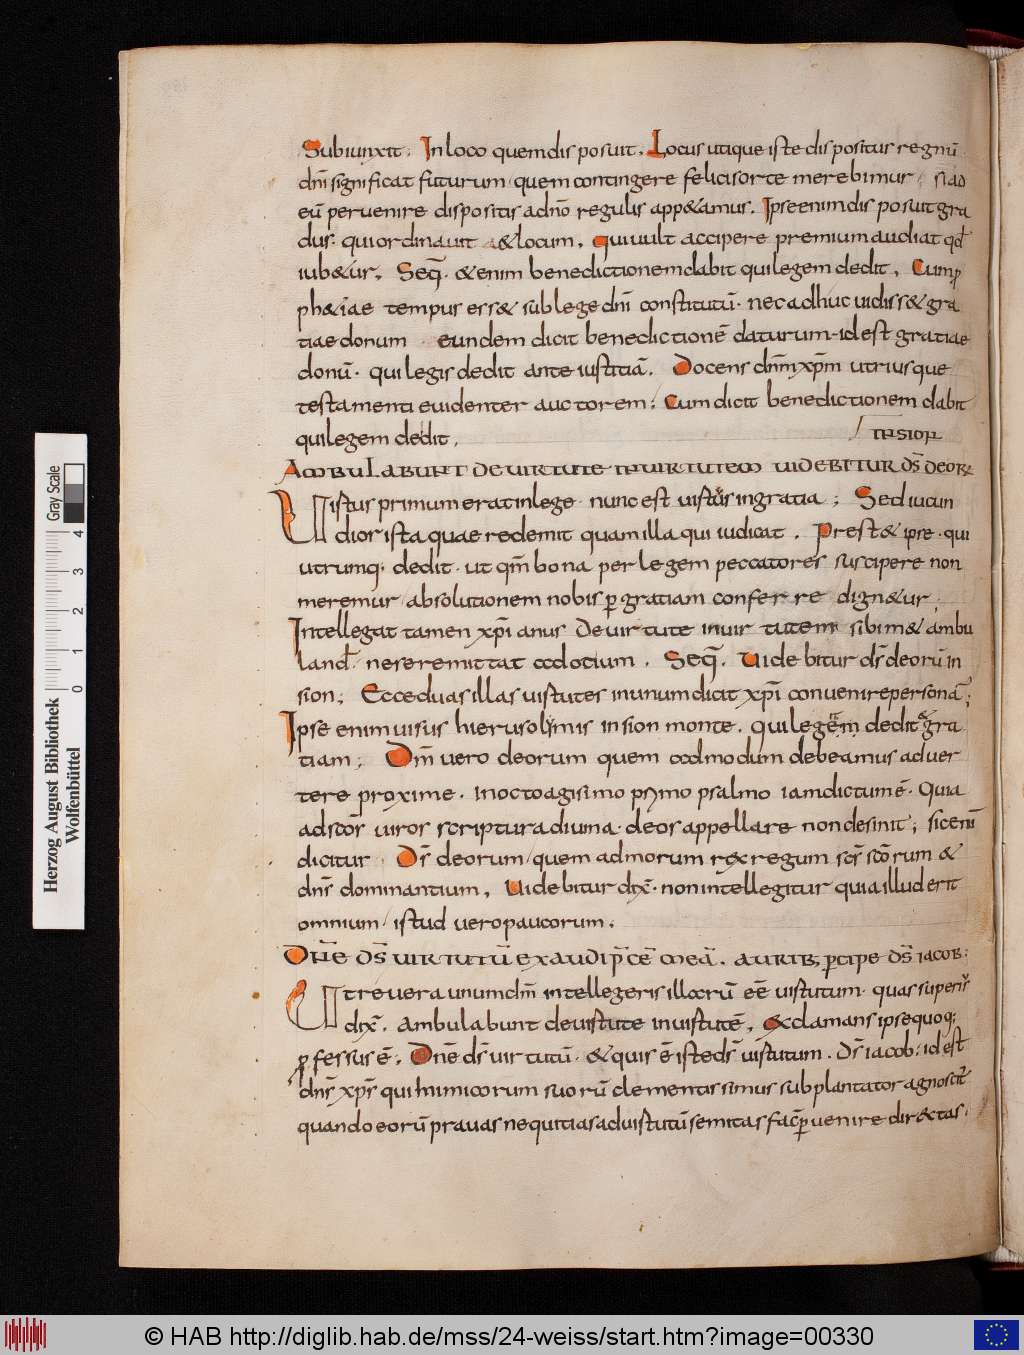 Subiunxit. In loco quem disposuit. Locus utique iste dispositus regnū
dn̄i significat futurum quem contingere felici sorte merebimur, si ad
eū pervenire dispositis ad nō regulis app&amus. Ipse enim disposuit gra
dus. qui ordinavit &locum. Qui vult accipere premium audiat qđ
iub&ur. Seq̄. & enim benedictionem dabit qui legem dedit. Cum p
ph&iae tempus ess& sub lege dn̄i constitutū. nec adhuc vidiss& gra
tiae donum eundem dicit benedictionē daturum. id est gratiae
donū. qui legis dedit ante iustitiā. Docens dn̄m xp̄m utriusque
testamenti evidenter auctorem. Cum dicit benedictionem dabit
qui legem dedit.
IN SION
AMBULABUNT DE VIRTUTE IN VIRTUTEM VIDEBITUR DS̄ DEORꝜ
Virtus primum erat in lege. nunc est virtus in gratia; Sed iucun
dior ista quae redemit quam illa qui iudicat. Prest& ipse. qui
utrumq. dedit. ut qm̄ bona per legem peccatores suscipere non
meremur, absolutionem nobis ꝑ gratiam conferre dign&ur
Intellegat tamen xp̄ianus de virtute in virtutem sibim& ambu
land. ne se remittat ad otium. Seq̄. Videbitur ds̄ deorū in
sion; Ecce duas illas virtutes in unum dicit xp̄i convenire personā;
Ipse enim visus hierusolymis in sion monte. qui legem dedit & gra
tiam; Dm̄ vero deorum quem ad modum debeamus adver
tere proxime. in octoagisimo primo psalmo iam dictum ē. Quia
ad scōs viros scriptura divina. deos appellare non desinit; sic enī
dicitur Ds̄ deorum, quem ad morum rex regum scs̄ scōrum &
dn̄s dominantium. Videbitur dix̄. non intellegitur quia illud erit
omnium, istud vero paucorum.
DN̄E DS̄ VIRTUTŪ EXAUDI P̄CĒ MEĀ. AURIB; ꝑCIPE DS̄ IACOB:
Et revera unum dm̄ intellegeris illarū eē virtutum. quas superiꝰ
dix̄. Ambulabunt de virtute in virtutē. Exclamans ipse quoq;
ꝓfessus ē. Dn̄e ds̄ virtutū. & quis ē iste ds̄ virtutum. Ds̄ iacob: id est
dn̄s xp̄s qui inimicorum suorū clementissimus subplantator agnoscit̄
quando eorū pravas nequitias ad virtutū semitas fac̄ ꝑvenire dir&tas.
Herzog August Bibliothek
Wolfenbüttel
0 1 2 3 4
Gray Scale
© HAB http://diglib.hab.de/mss/24-weiss/start.htm?image=00330